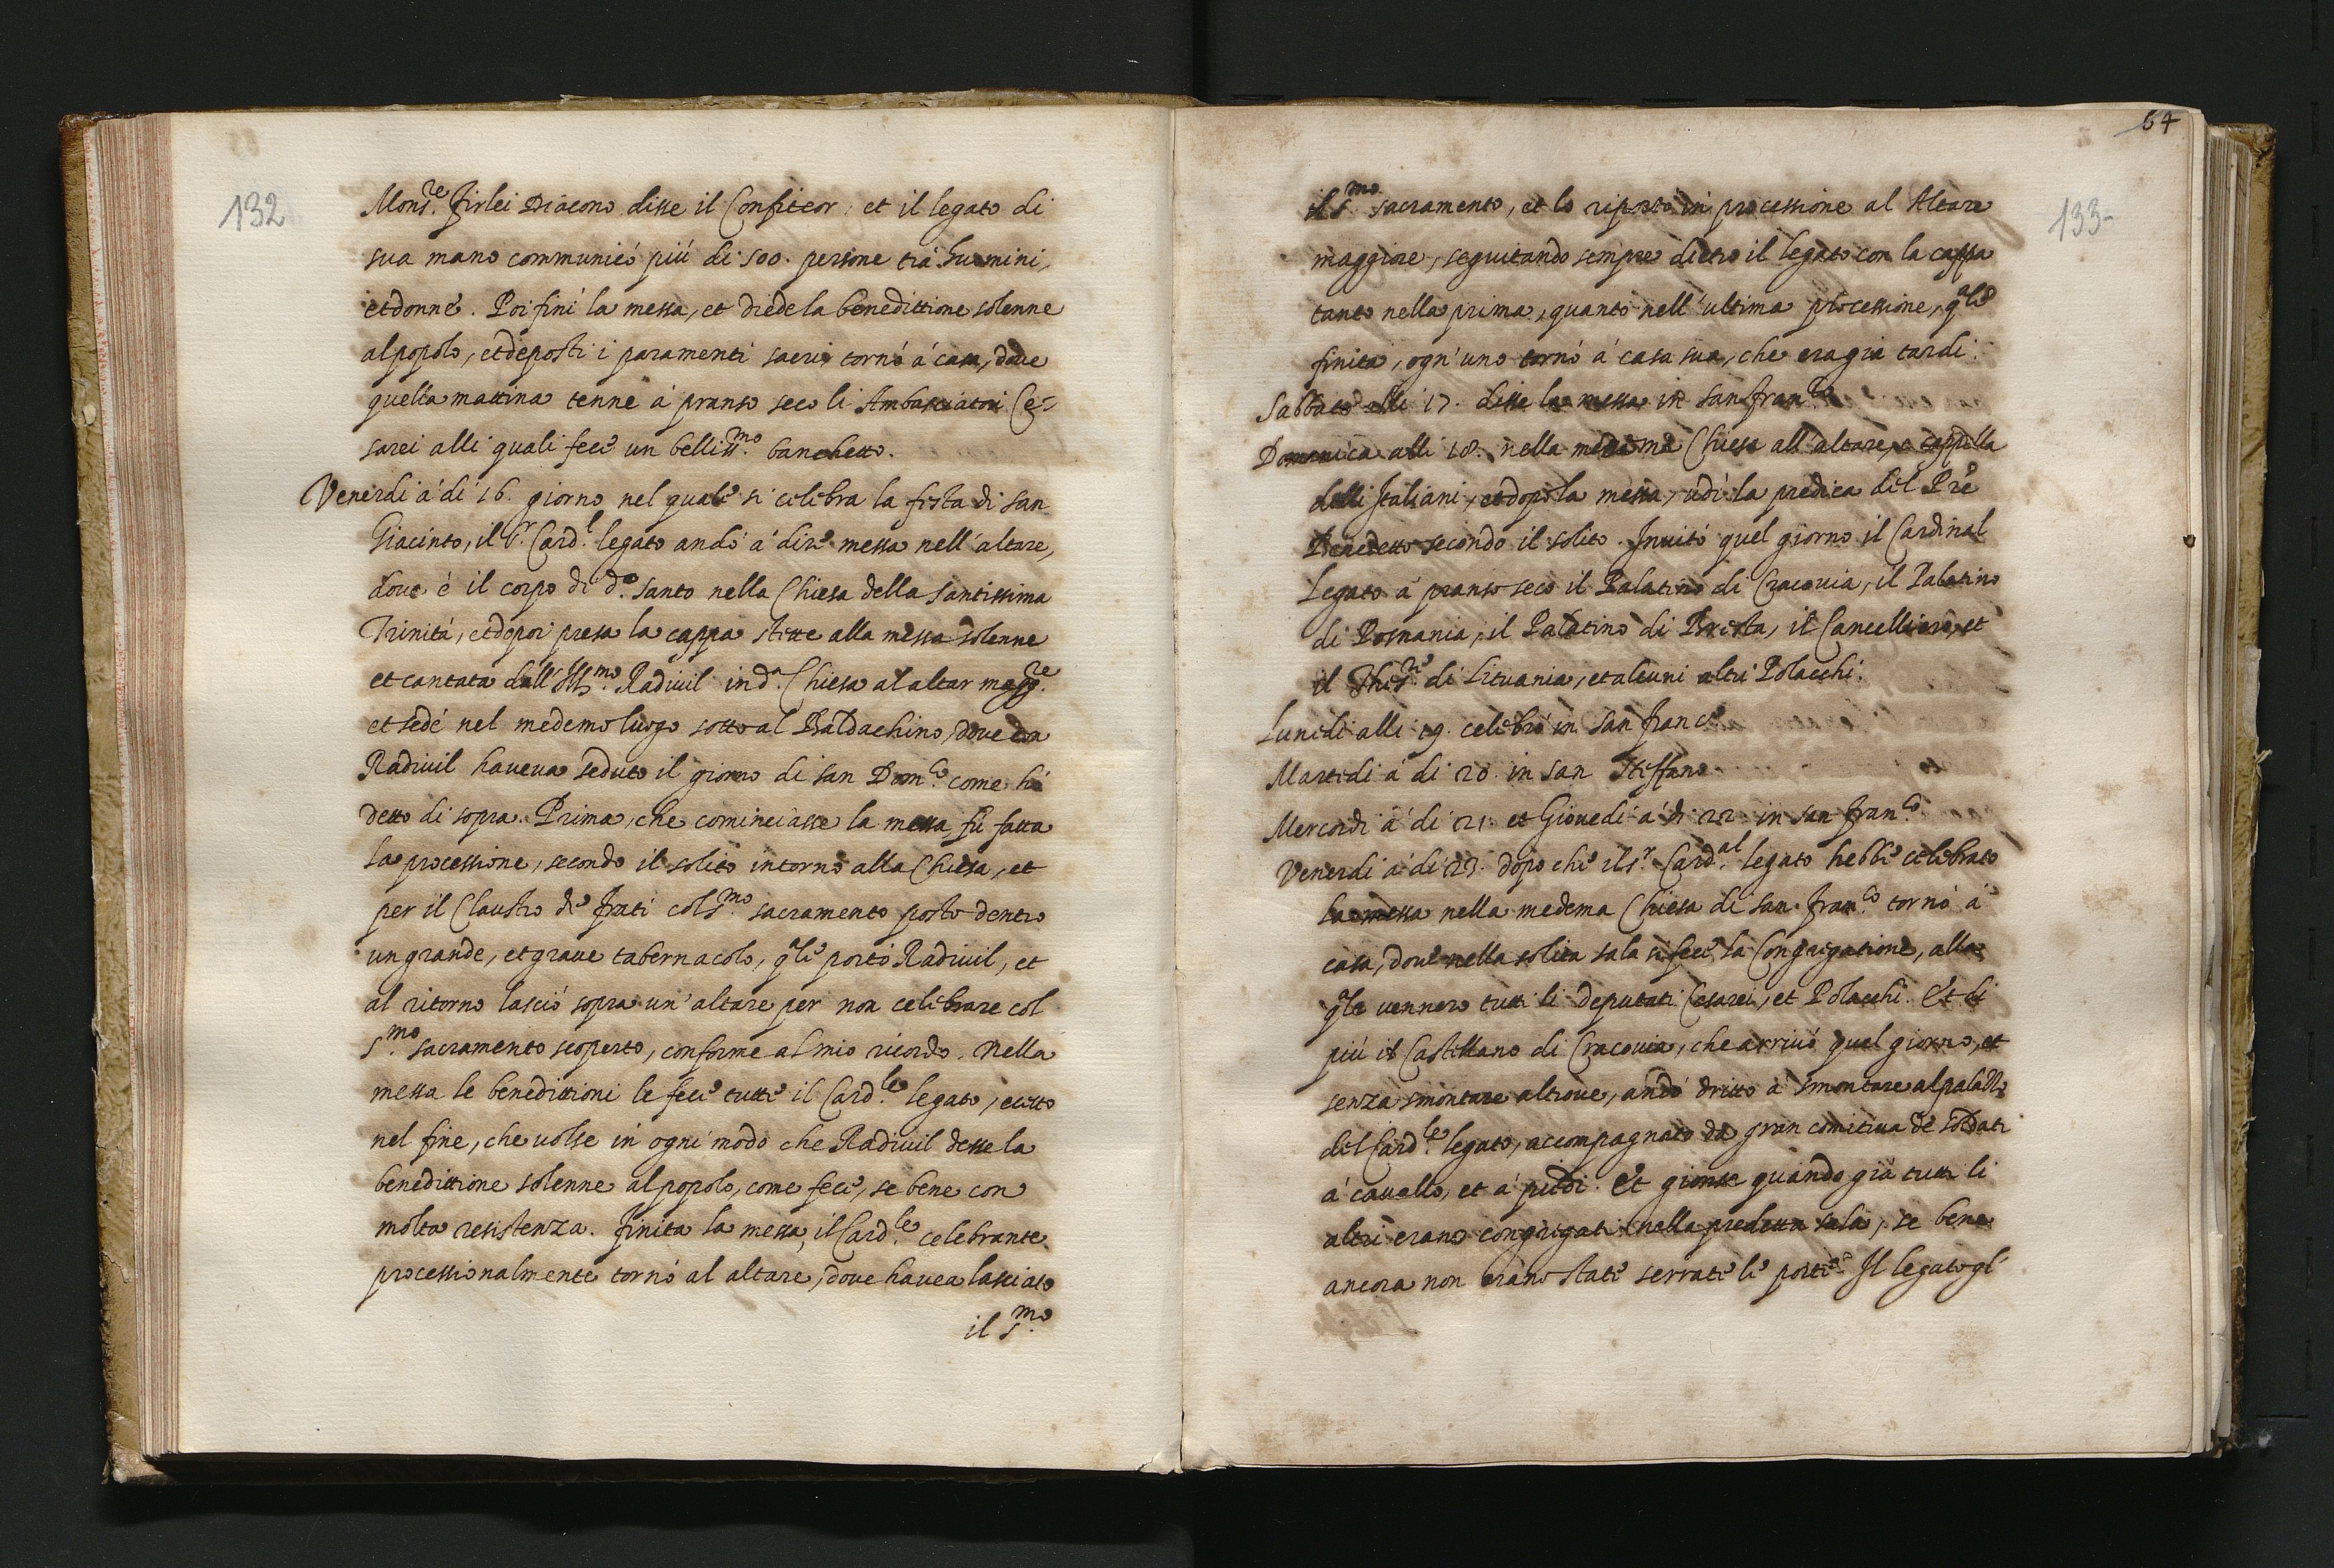 132
Mons.re Firlei Diacono disse il Confiteor, et il legato di
sua mano communicò più di 500. persone trà huomini,
et donne. Poi finì la messa, et diede la benedittione solenne
al popolo, et deposti i paramenti sacri tornò à casa, dove
quella mattina tenne à pranso seco li Ambasciatori Ce-
sarei alli quali fece un belliss.mo banchetto.
Venerdi à di 16. giorno nel quale si celebra la festa di san
Giacinto, il S.r Card.l legato andò à dire messa nell'altare,
dove è il corpo di d.o santo nella Chiesa della santissima
Trinità, et dopoi presa la cappa stette alla messa solenne
et cantata dall'Ill.mo Radivil in d.a Chiesa al altar magg.re
et sedè nel medemo luogo sotto al Baldachino, dove
Radivil haveva seduto il giorno di san Dom.co come hò
detto di sopra. Prima, che cominciasse la messa fù fatta
la processione, secondo il solito intorno alla Chiesa, et
per il Claustro de frati col S.mo sacramento posto dentro
un grande, et grave tabernacolo, q.le portò Radivil, et
al ritorno lasciò sopra un'altare per non celebrare col
S.mo sacramento scoperto, conforme al mio ricordo. Nella
messa le benedittioni le fece tutte il Card.le legato, ecetto
nel fine, che volse in ogni modo che Radivil desse la
benedittione solenne al popolo, come fece, se bene con
molta resistenza. Finita la messa, il Card.le celebrante
processionalmente tornò al altare, dove havea lasciato
il S.mo
64
133-
il S.mo sacramento, et lo riportò in processione al Altare
maggiore, seguitando sempre dietro il legato con la cappa
tanto nella prima, quanto nell'ultima processione, q.le
finita, ogn'uno tornò à casa sua, che era già tardi.
Sabbato alli 17. disse la messa in san Fran.co
Domenica alli 18. nella medema Chiesa all'altare, e cappella
delli Italiani, et dopo la messa, udì la predica del Pre
Benedetto secondo il solito. Invitò quel giorno il Cardinal
Legato à pranso seco il Palatino di Cracovia, il Palatino
di Posnania, il Palatino di Bresta, il Cancelliere, et
il Thes.re di Lituania, et alcuni altri Polacchi.
Lunedi alli 19. celebrò in san Franc.o
Martedi à di 20. in san Steffano.
Mercordi à di 21. et Giovedi à di 22. in san Fran.co
Venerdi à di 23. dopo che il S.r Card.al legato hebbe celebrato
la messa nella medema Chiesa di san Fran.co tornò à
casa, dove nella solita sala si fece la Congregatione, alla
q.le vennero tutti li deputati Cesarei, et Polacchi. Et di
più il Castellano di Cracovia, che arrivò quel giorno, et
senza smontare altrove, andò dritto à smontare al palazzo
del Card.le legato, accompagnato da gran comitiva de soldati
à cavallo, et à piedi. Et gionse quando già tutti li
altri erano congregati nella predetta sala, se bene
ancora non erano state serrate le porte. Il legato gl'